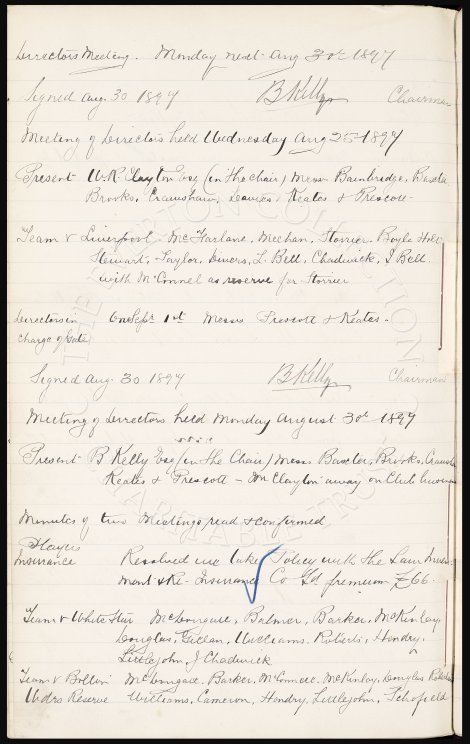 Directors Meeting. Monday next Aug 30th 1897
Signed Aug. 30 1897 B Kelly Chairman
Meeting of Directors held Wednesday Aug 25 1897
Present W.R. Clayton Esq (in the chair) Messrs Bainbridge, Baxter
Brooks, Crawshaw, Davies, Keates & Prescott -
Team v Liverpool. McFarlane, Meehan, Storrier, Boyle Holt
Stewart, Taylor, Divers, L. Bell, Chadwick, J Bell
with McConnel as reserve for Storrier
Directors in One Sept 1st Messrs Prescott & Keates -
charge of Gate
Signed Aug. 30 1897 B Kelly Chairman
Meeting of Directors held Monday August 30th 1897
Present B Kelly Esq (in the Chair) Messrs Baxter, Brooks, Crawsha
Keates & Prescott - Mr Clayton away on Club business
Minutes of two Meetings read & confirmed
Players
Insurance Resolved we take Policy with the Law
& Re-Insurance Co Ld premium £66.
Team v White Star McGougall, Balmer, Barker, McKinlay
Douglas, Gillan, Williams, Roberts, Hendry,
Littlejohn, J Chadwick
Team v Bolton McGougall, Barker, McConnell, McKinlay, Douglas Roberts
Wdrs Reserve Williams, Cameron, Hendry, Littlejohn, Schofield